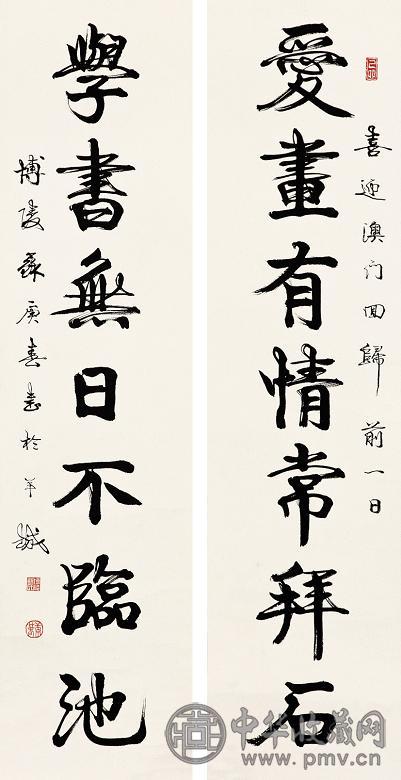 喜迎澳门回歸前一日
愛畫有情常拜石
學書無日不臨池
博陵蘇庚春書於羊城
中华收藏网
www.pmv.cn